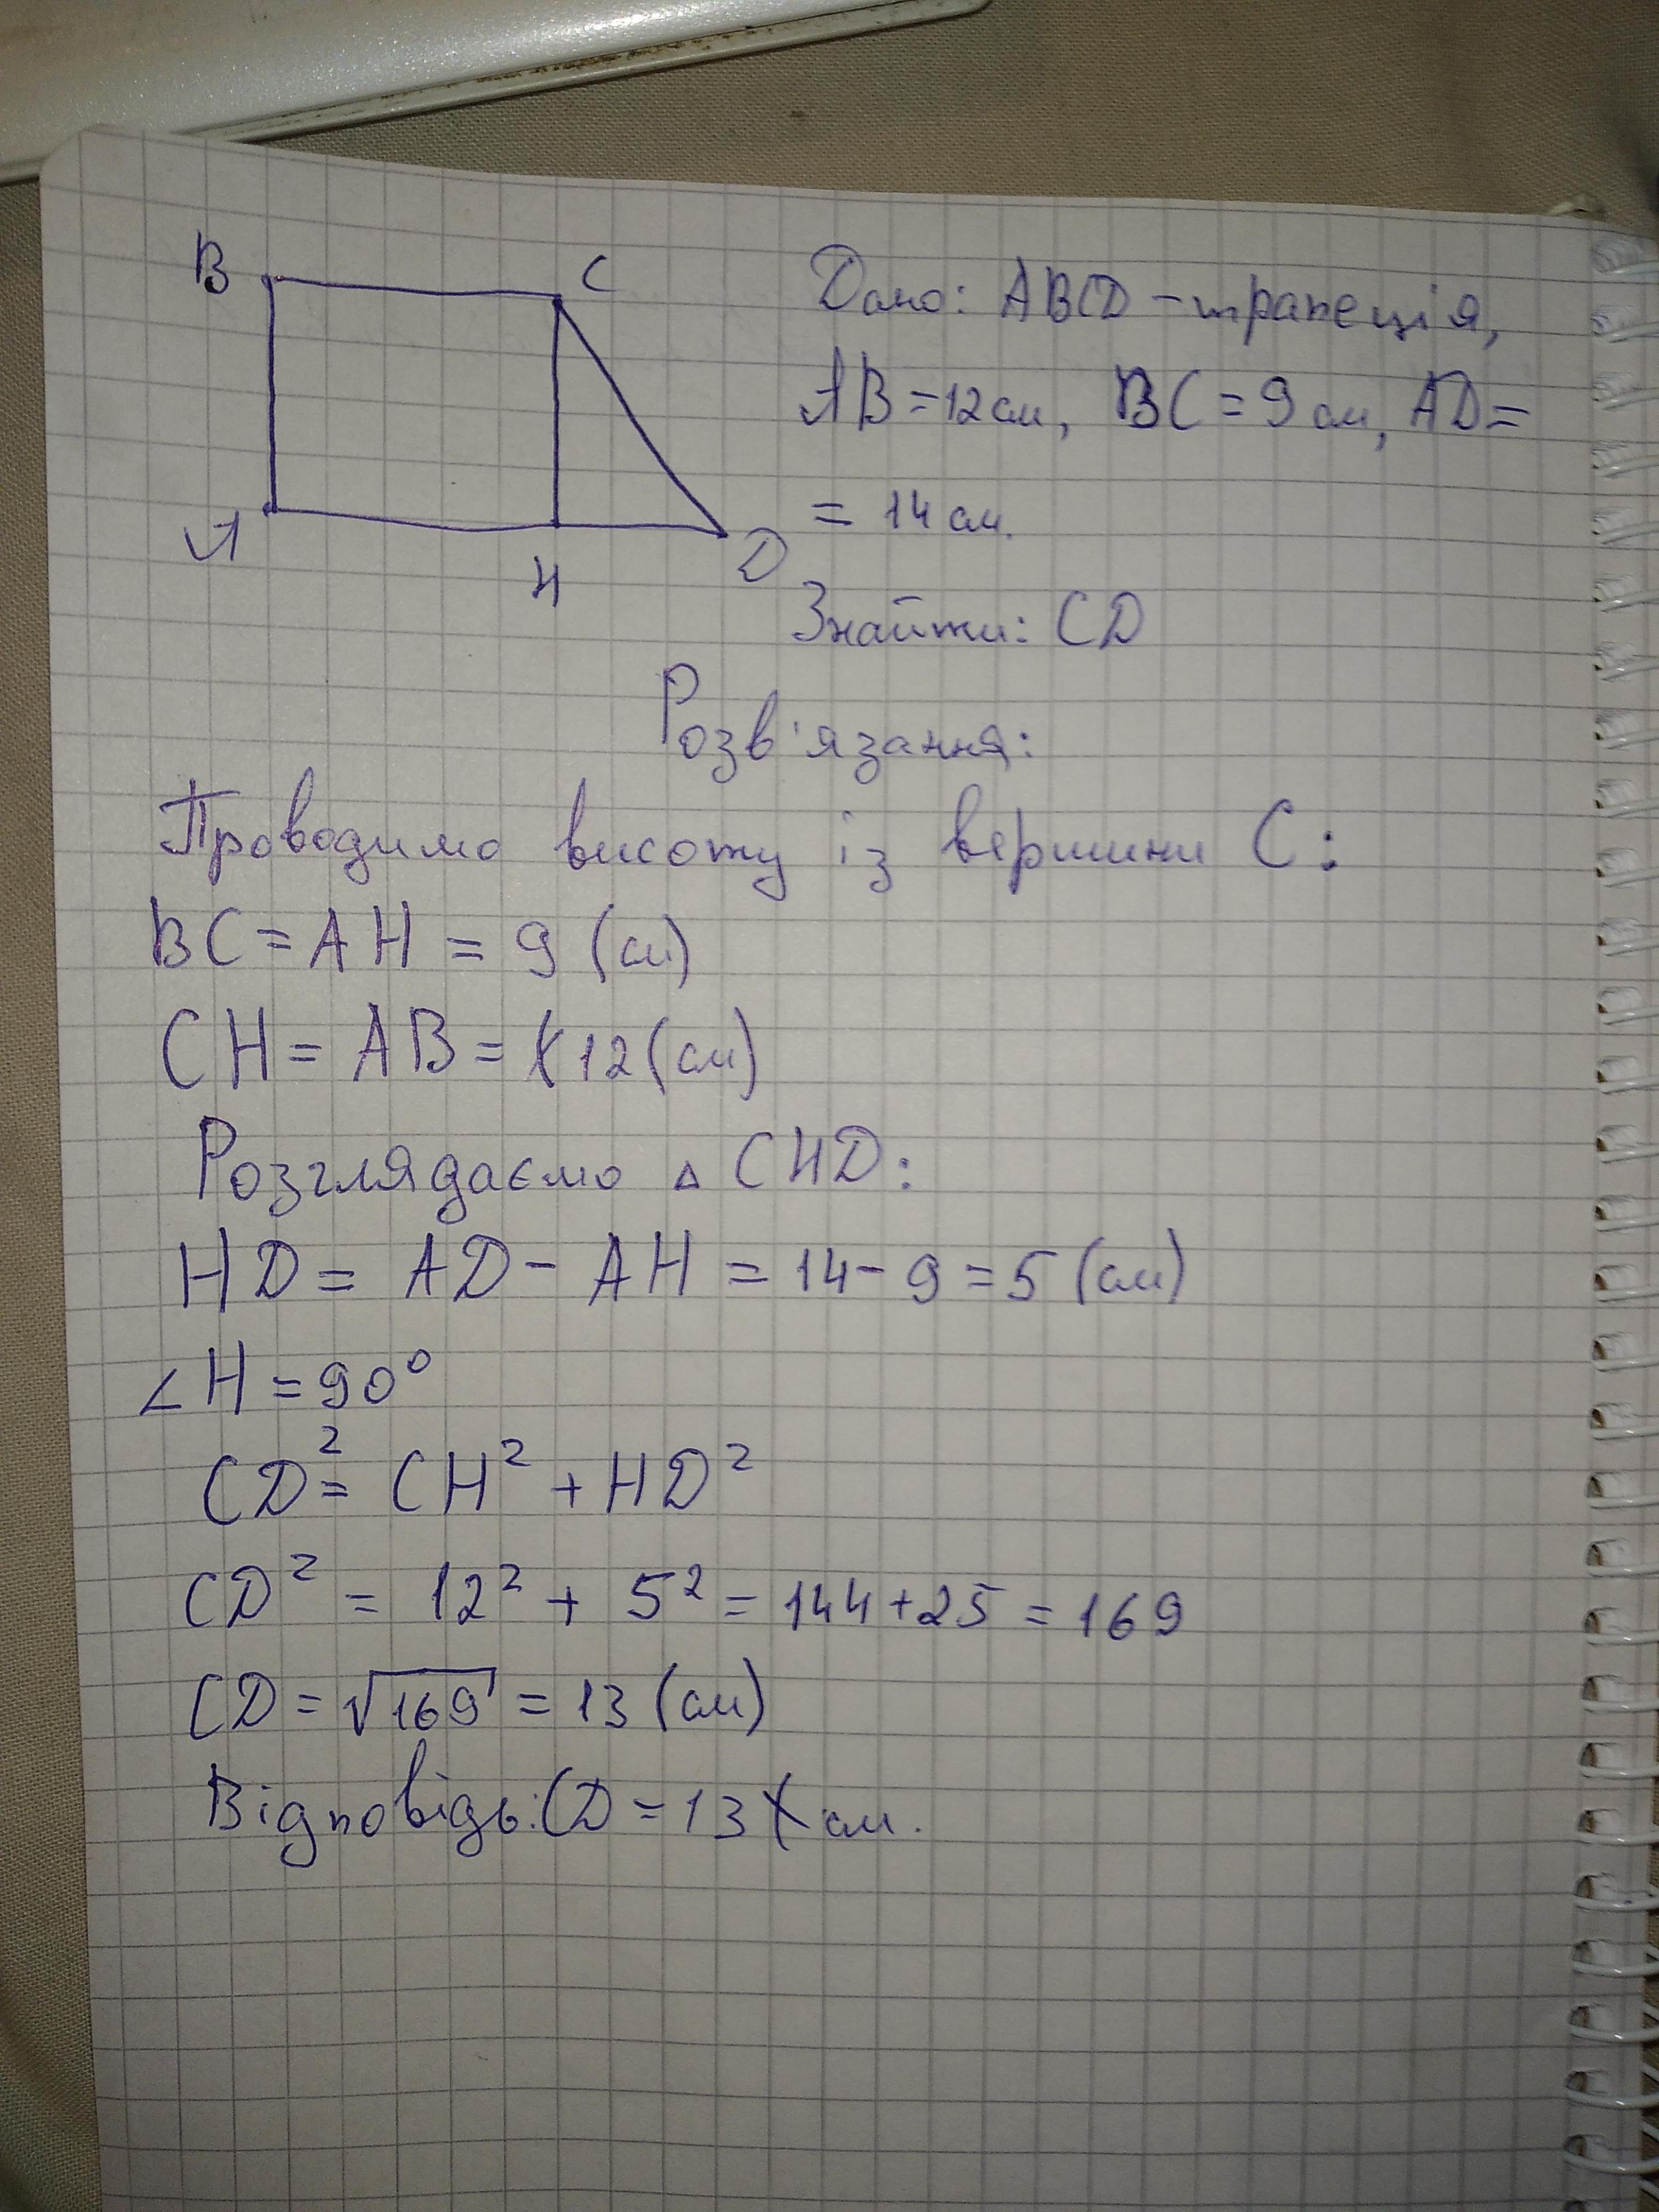 B C
A H D
Дано: ABCD - трапеція,
AB = 12 см, BC = 9 см, AD =
= 14 см.
Знайти: CD
Розв'язання:
Проводимо висоту із вершини C:
BC = AH = 9 (см)
CH = AB = 12 (см)
Розглядаємо △ CHD:
HD = AD - AH = 14 - 9 = 5 (см)
∠H = 90°
CD² = CH² + HD²
CD² = 12² + 5² = 144 + 25 = 169
CD = √169 = 13 (см)
Відповідь: CD = 13 см.